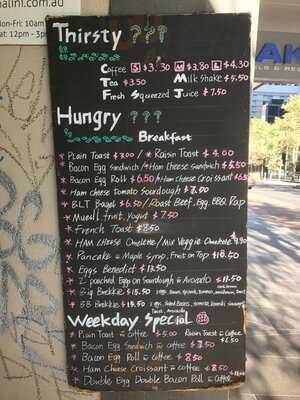 alini.com.au
Mon-Fri: 10am
Sat: 12pm - 3pm
Thirsty ???
Coffee S $3.30 M $3.80 L $4.30
Tea $3.50 Milkshake $5.50
Fresh Squeezed Juice $7.50
Hungry ???
Breakfast
* Plain Toast $3.00 / * Raisin Toast $4.00
* Bacon Egg Sandwich / * Ham Cheese Sandwich $5.50
* Bacon Egg Roll 6.50 / * Ham Cheese Croissant
* Ham cheese Tomato Sourdough $8.00
* BLT Bagel 6.50 / Roast Beef, Egg, BBQ, Rap
* Muesli fruit, Yogurt $7.50
* French Toast $8.50
* HAM CHEESE Omelette / Mix Veggie Omelette
* Pancake Maple syrup, Fruit on Top
* Eggs Benedict $13.50
* 2 poached Egg on Sourdough Avocado
* Big Brekkie $15.50
* BB Brekkie $15.50
Weekday Special
* Plain Toast Coffee $5.00 Raisin Toast Coffee
* Bacon Egg Sandwich Coffee
* Bacon Egg Roll Coffee 8.50
* Ham Cheese Croissant Coffee $8.50
* Double Egg Double Bacon Roll Coffee
AK